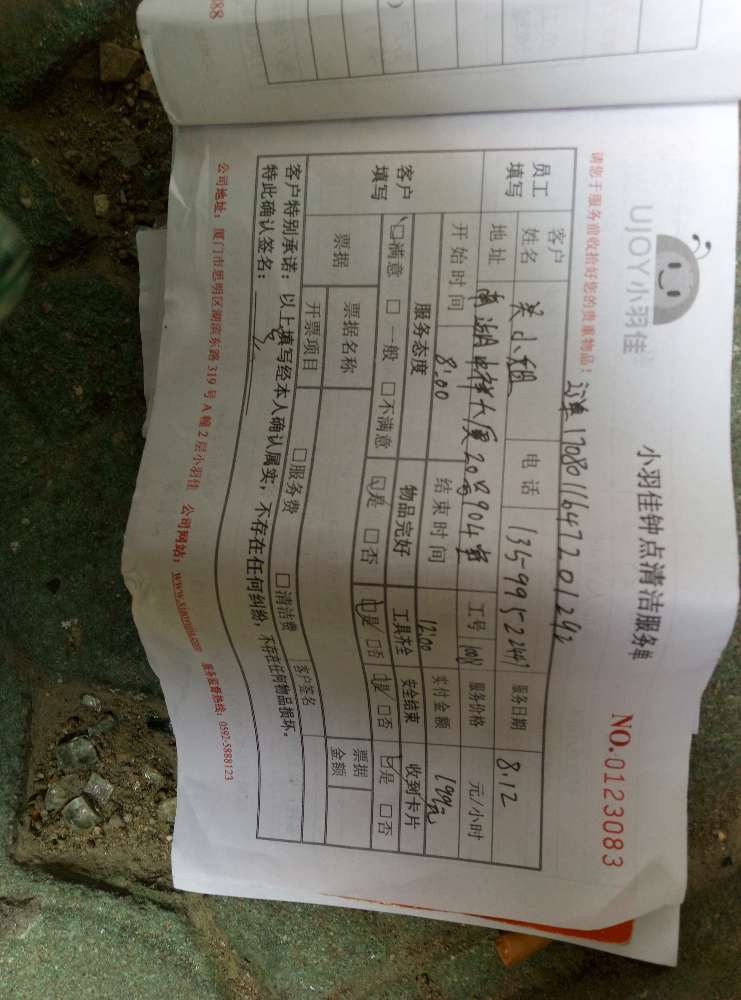 UJOY小羽佳
小羽佳钟点清洁服务单
NO.0123083
请您于服务前收拾好您的贵重物品!
订单 17080116472201292
员工填写
客户姓名 关小姐 电话 135-995-2244 服务日期 8.12
地址 南湖中祥大厦20号904室 工号 1008 服务价格 元/小时
开始时间 8:00 结束时间 12:00 实付金额
客户填写
服务态度 物品完好 工具齐全 安全结束 收到卡片
☑满意 □一般 □不满意 ☑是 □否 ☑是 □否 ☑是 □否 ☑是 □否
票据 票据名称 票据金额
开票项目 □服务费 □清洁费 客户签名
客户特别承诺:以上填写经本人确认属实,不存在任何纠纷,不存在任何物品损坏。
特此确认签名:
公司地址:厦门市思明区湖滨东路319号A幢2层小羽佳 公司网站:www.xiaoyujia.com 服务监督热线:0592-5888123